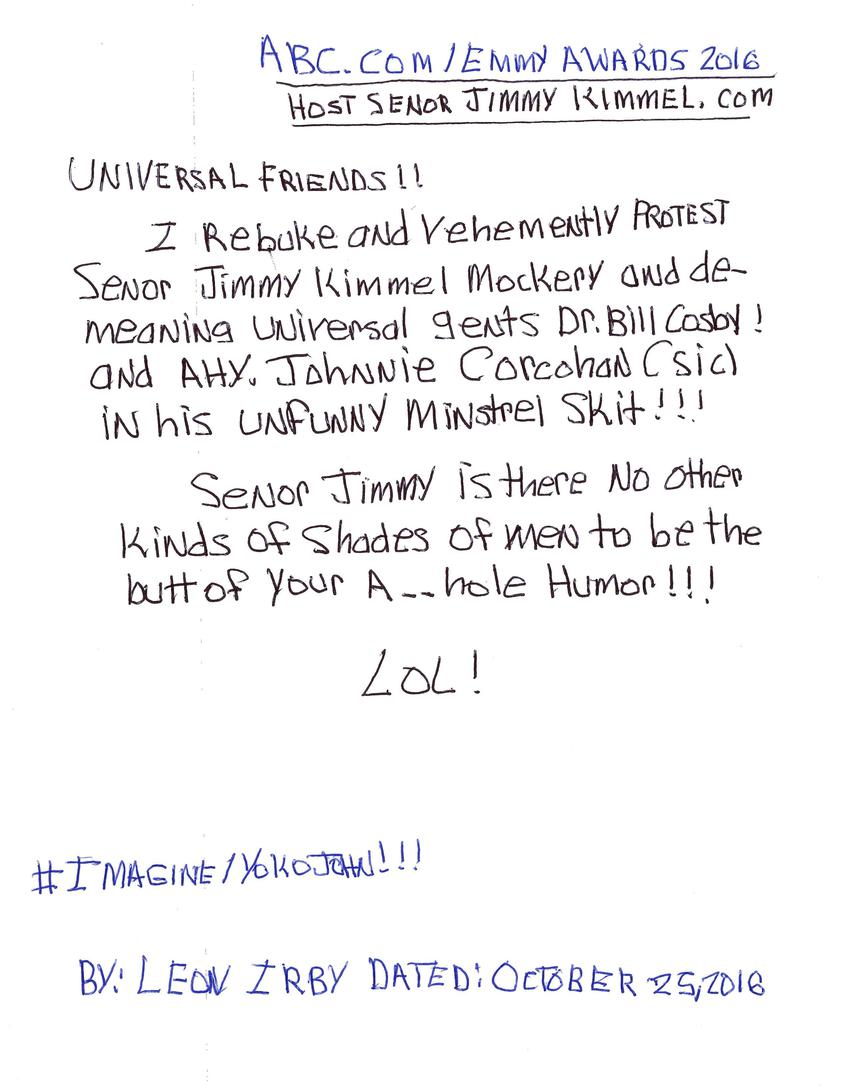 ABC.COM/EMMY AWARDS 2016
HOST SENOR JIMMY KIMMEL.COM
UNIVERSAL FRIENDS!!
I Rebuke and Vehemently PROTEST
Senor Jimmy Kimmel Mockery and de-
meaning universal gents Dr. Bill Cosby!
and Atty. Johnnie Corcohan (sic)
in his unfunny Minstrel Skit!!!
Senor Jimmy is there No other
Kinds of Shades of men to be the
butt of your A__hole Humor!!!
LOL!
#IMAGINE/YOKOJOHN!!!
BY: LEON IRBY DATED: OCTOBER 25, 2016